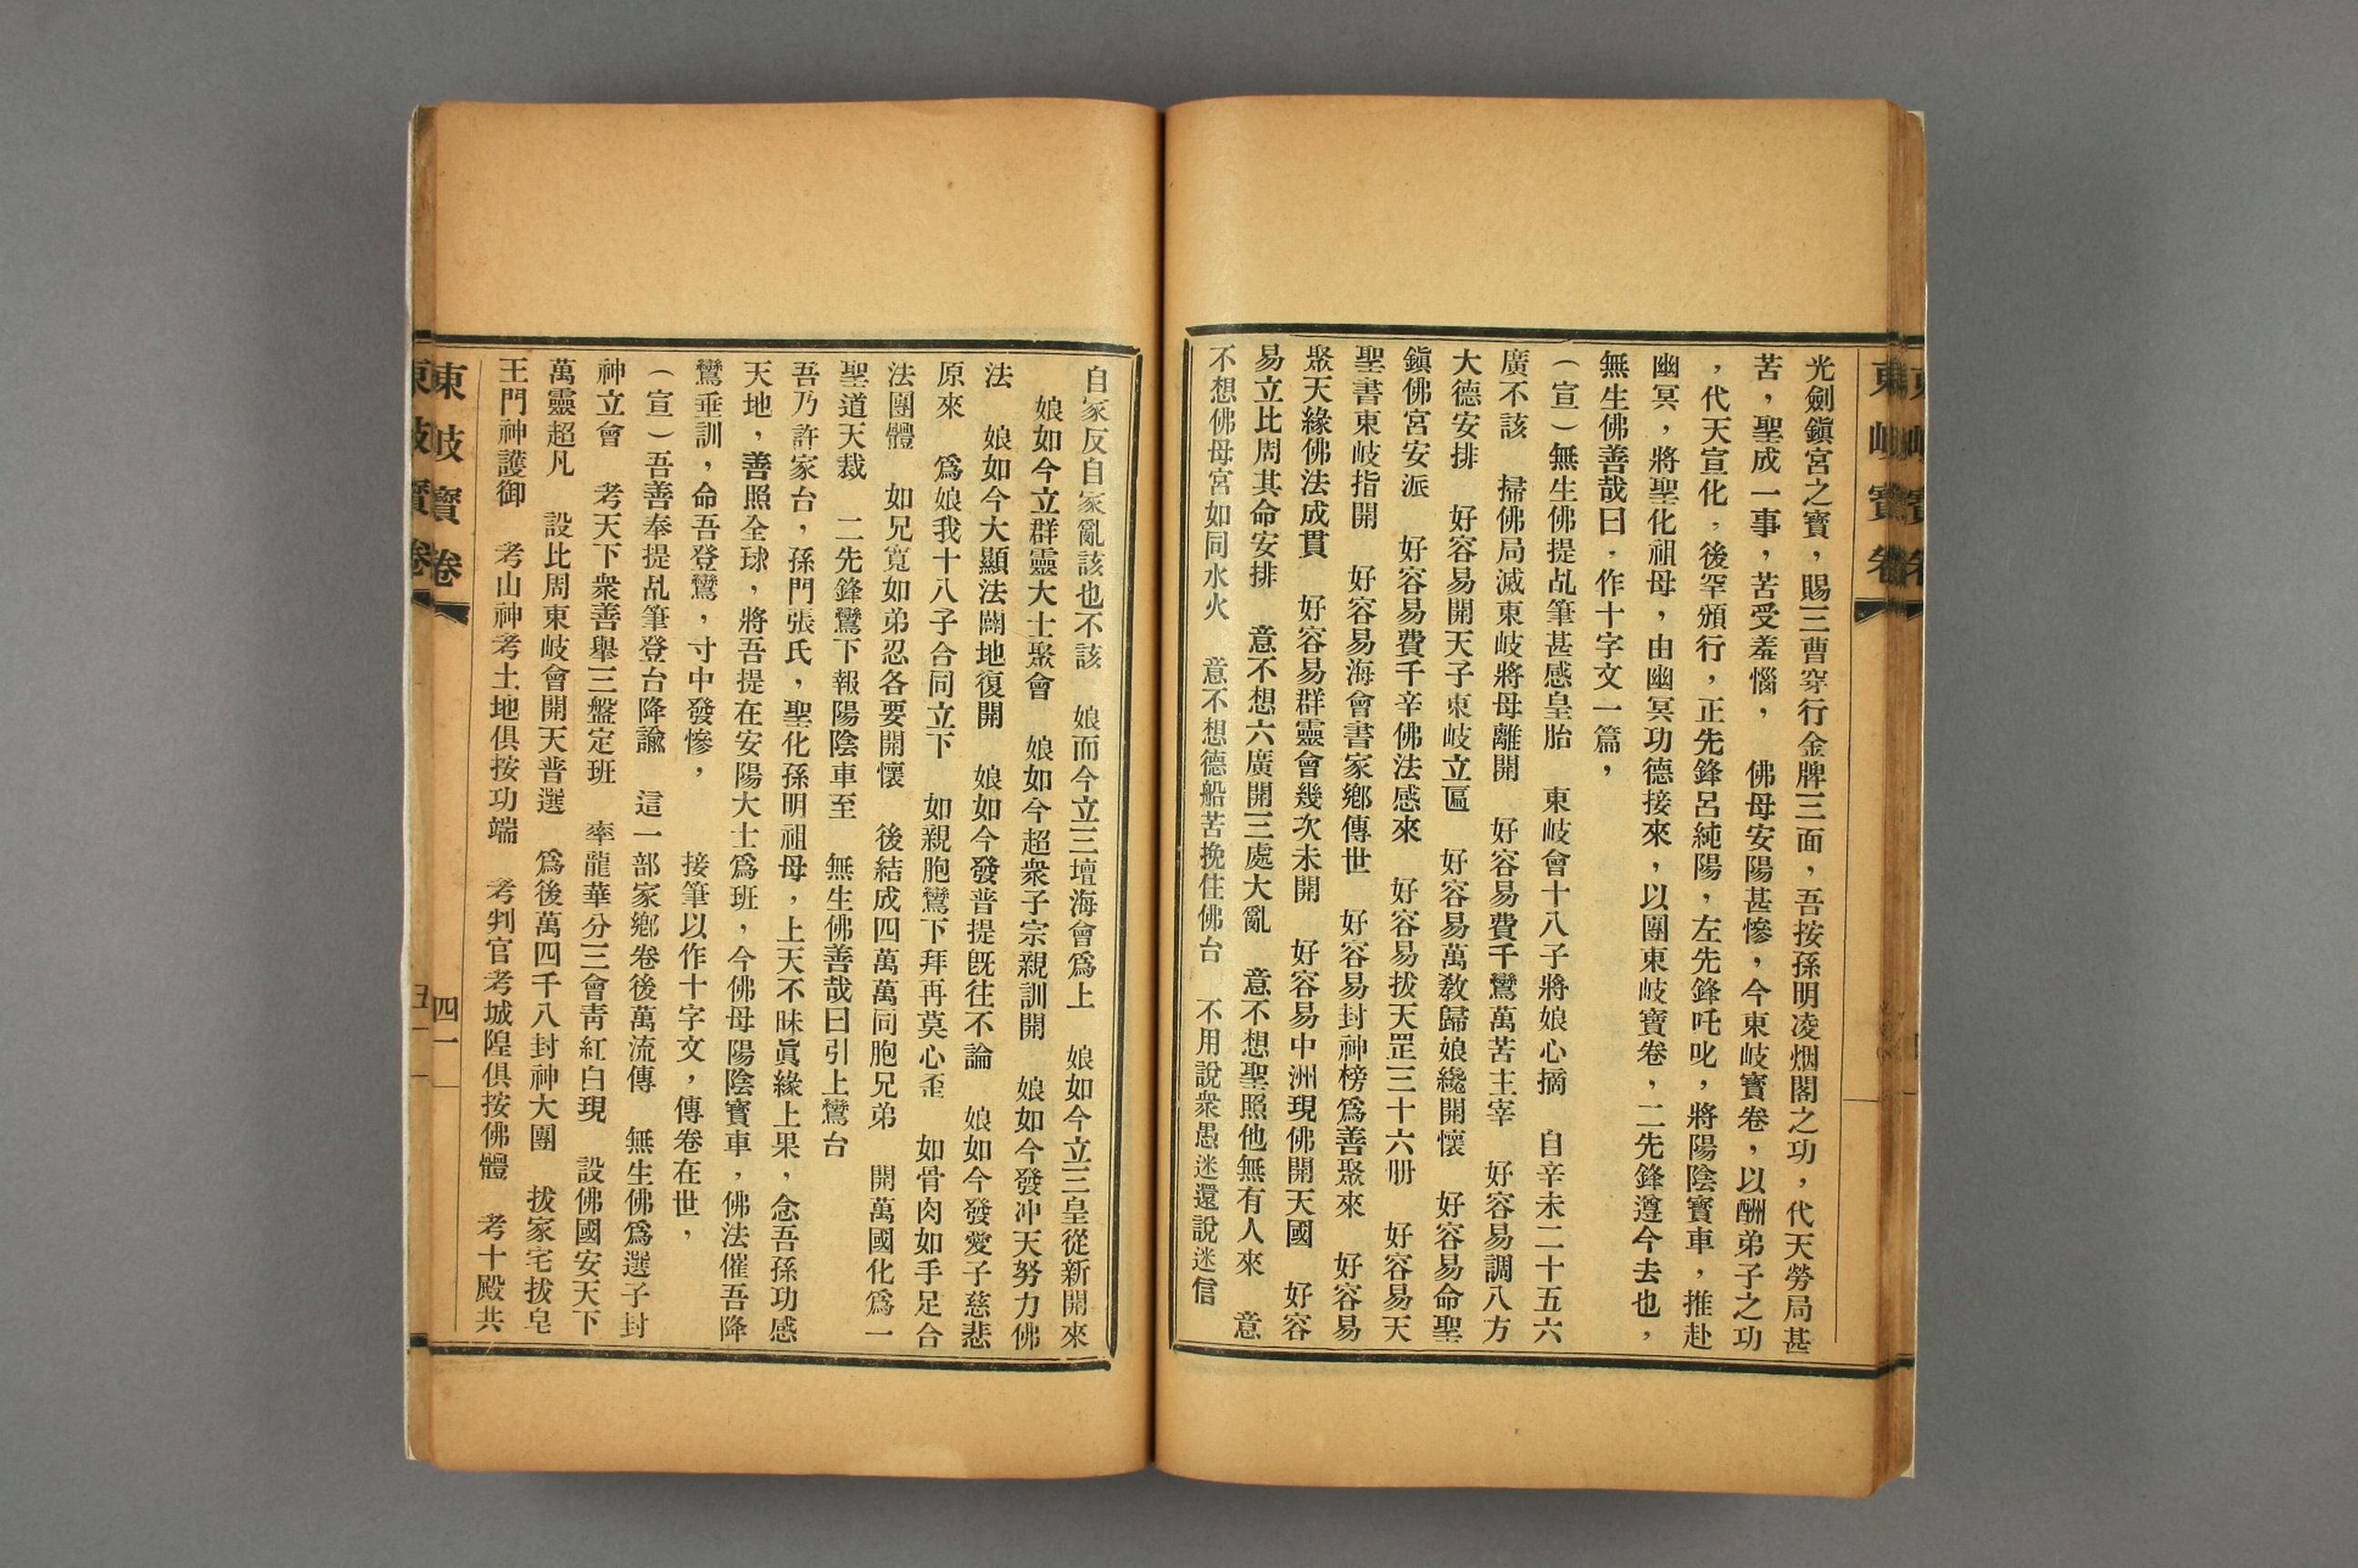 東岐寶卷
光劍鎭宮之寶，賜三曹穿行金牌三面，吾按孫明凌烟閣之功，代天勞局甚
苦，聖成一事，苦受羞惱，　佛母安陽甚慘，今東岐寶卷，以酬弟子之功
，代天宣化，後罕頒行，正先鋒呂純陽，左先鋒吒叱，將陽陰寶車，推赴
幽冥，將聖化祖母，由幽冥功德接來，以團東岐寶卷，二先鋒遵今去也，
無生佛善哉曰，作十字文一篇，
（宣）無生佛提乩筆甚感皇胎　東岐會十八子將娘心摘　自辛未二十五六
廣不該　掃佛局滅東岐將母離開　好容易費千鸞萬苦主宰　好容易調八方
大德安排　好容易開天子東岐立匾　好容易萬教歸娘纔開懷　好容易命聖
鎭佛宮安派　好容易費千辛佛法感來　好容易拔天罡三十六册　好容易天
聖書東岐指開　好容易海會書家鄕傳世　好容易封神榜爲善聚來　好容易
聚天緣佛法成貫　好容易群靈會幾次未開　好容易中洲現佛開天國　好容
易立比周其命安排　意不想六廣開三處大亂　意不想聖照他無有人來　意
不想佛母宮如同水火　意不想德船苦挽住佛台　不用說衆愚迷還說迷信
自家反自家亂該也不該　娘而今立三壇海會爲上　娘如今立三皇從新開來
娘如今立群靈大士聚會　娘如今超衆子宗親訓開　娘如今發冲天努力佛
法　娘如今大顯法闢地復開　娘如今發普提既往不論　娘如今發愛子慈悲
原來　爲娘我十八子合同立下　如親胞鸞下拜再莫心歪　如骨肉如手足合
法團體　如兄寬如弟忍各要開懷　後結成四萬萬同胞兄弟　開萬國化爲一
聖道天裁　二先鋒鸞下報陽陰車至　無生佛善哉曰引上鸞台
吾乃許家台，孫門張氏，聖化孫明祖母，上天不昧眞緣上果，念吾孫功感
天地，善照全球，將吾提在安陽大士爲班，今佛母陽陰寶車，佛法催吾降
鸞垂訓，命吾登鸞，寸中發慘，　接筆以作十字文，傳卷在世，
（宣）吾善奉提乩筆登台降諭　這一部家鄕卷後萬流傳　無生佛爲選子封
神立會　考天下衆善舉三盤定班　率龍華分三會靑紅白現　設佛國安天下
萬靈超凡　設比周東岐會開天普選　爲後萬四千八封神大團　拔家宅拔皂
王門神護御　考山神考土地俱按功端　考判官考城隍俱按佛體　考十殿共
東岐寶卷　四一